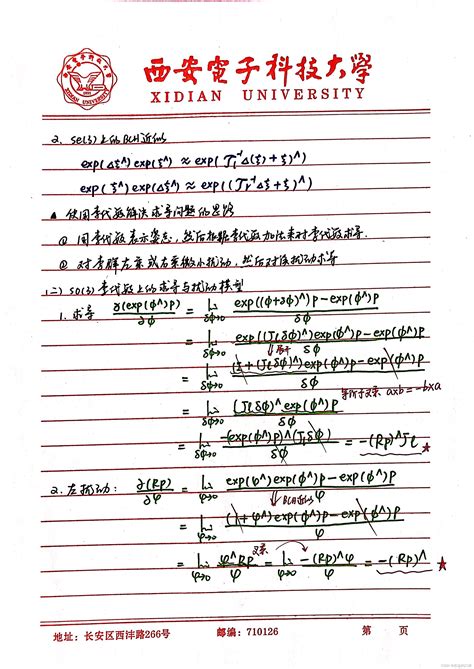 西安電子科技大學
XIDIAN UNIVERSITY
2. se(3)上的BCH近似
exp(Δξ^)exp(ξ^) ≈ exp((J_l^{-1}Δξ+ξ)^)
exp(ξ^)exp(Δξ^) ≈ exp((J_r^{-1}Δξ+ξ)^)
使用李代数解决求导问题的思路
① 用李代数表示姿态,然后根据李代数加法来对李代数求导.
② 对李群左乘或右乘微小扰动,然后对该扰动求导
(二) SO(3)李代数上的求导与扰动模型
1. 求导 ∂(exp(φ^)p)/∂φ = lim δφ→0 (exp((φ+δφ)^)p − exp(φ^)p)/δφ
= lim δφ→0 (exp((J_lδφ)^)exp(φ^)p − exp(φ^)p)/δφ
↓展开
= lim δφ→0 ((I+(J_lδφ)^)exp(φ^)p − exp(φ^)p)/δφ
= lim δφ→0 ((J_lδφ)^exp(φ^)p)/δφ 等价于叉乘 a×b = −b×a
= lim δφ→0 (−(exp(φ^)p)^(J_lδφ))/δφ = −(Rp)^J_l ★
2. 左扰动: ∂(Rp)/∂φ = lim φ→0 (exp(φ^)exp(φ^)p − exp(φ^)p)/φ
↓BCH近似
= lim φ→0 ((1+φ^)exp(φ^)p − exp(φ^)p)/φ
= lim φ→0 φ^Rp/φ 叉乘 = lim φ→0 −(Rp)^φ/φ = −(Rp)^ ★
地址:长安区西沣路266号 邮编:710126 第 页